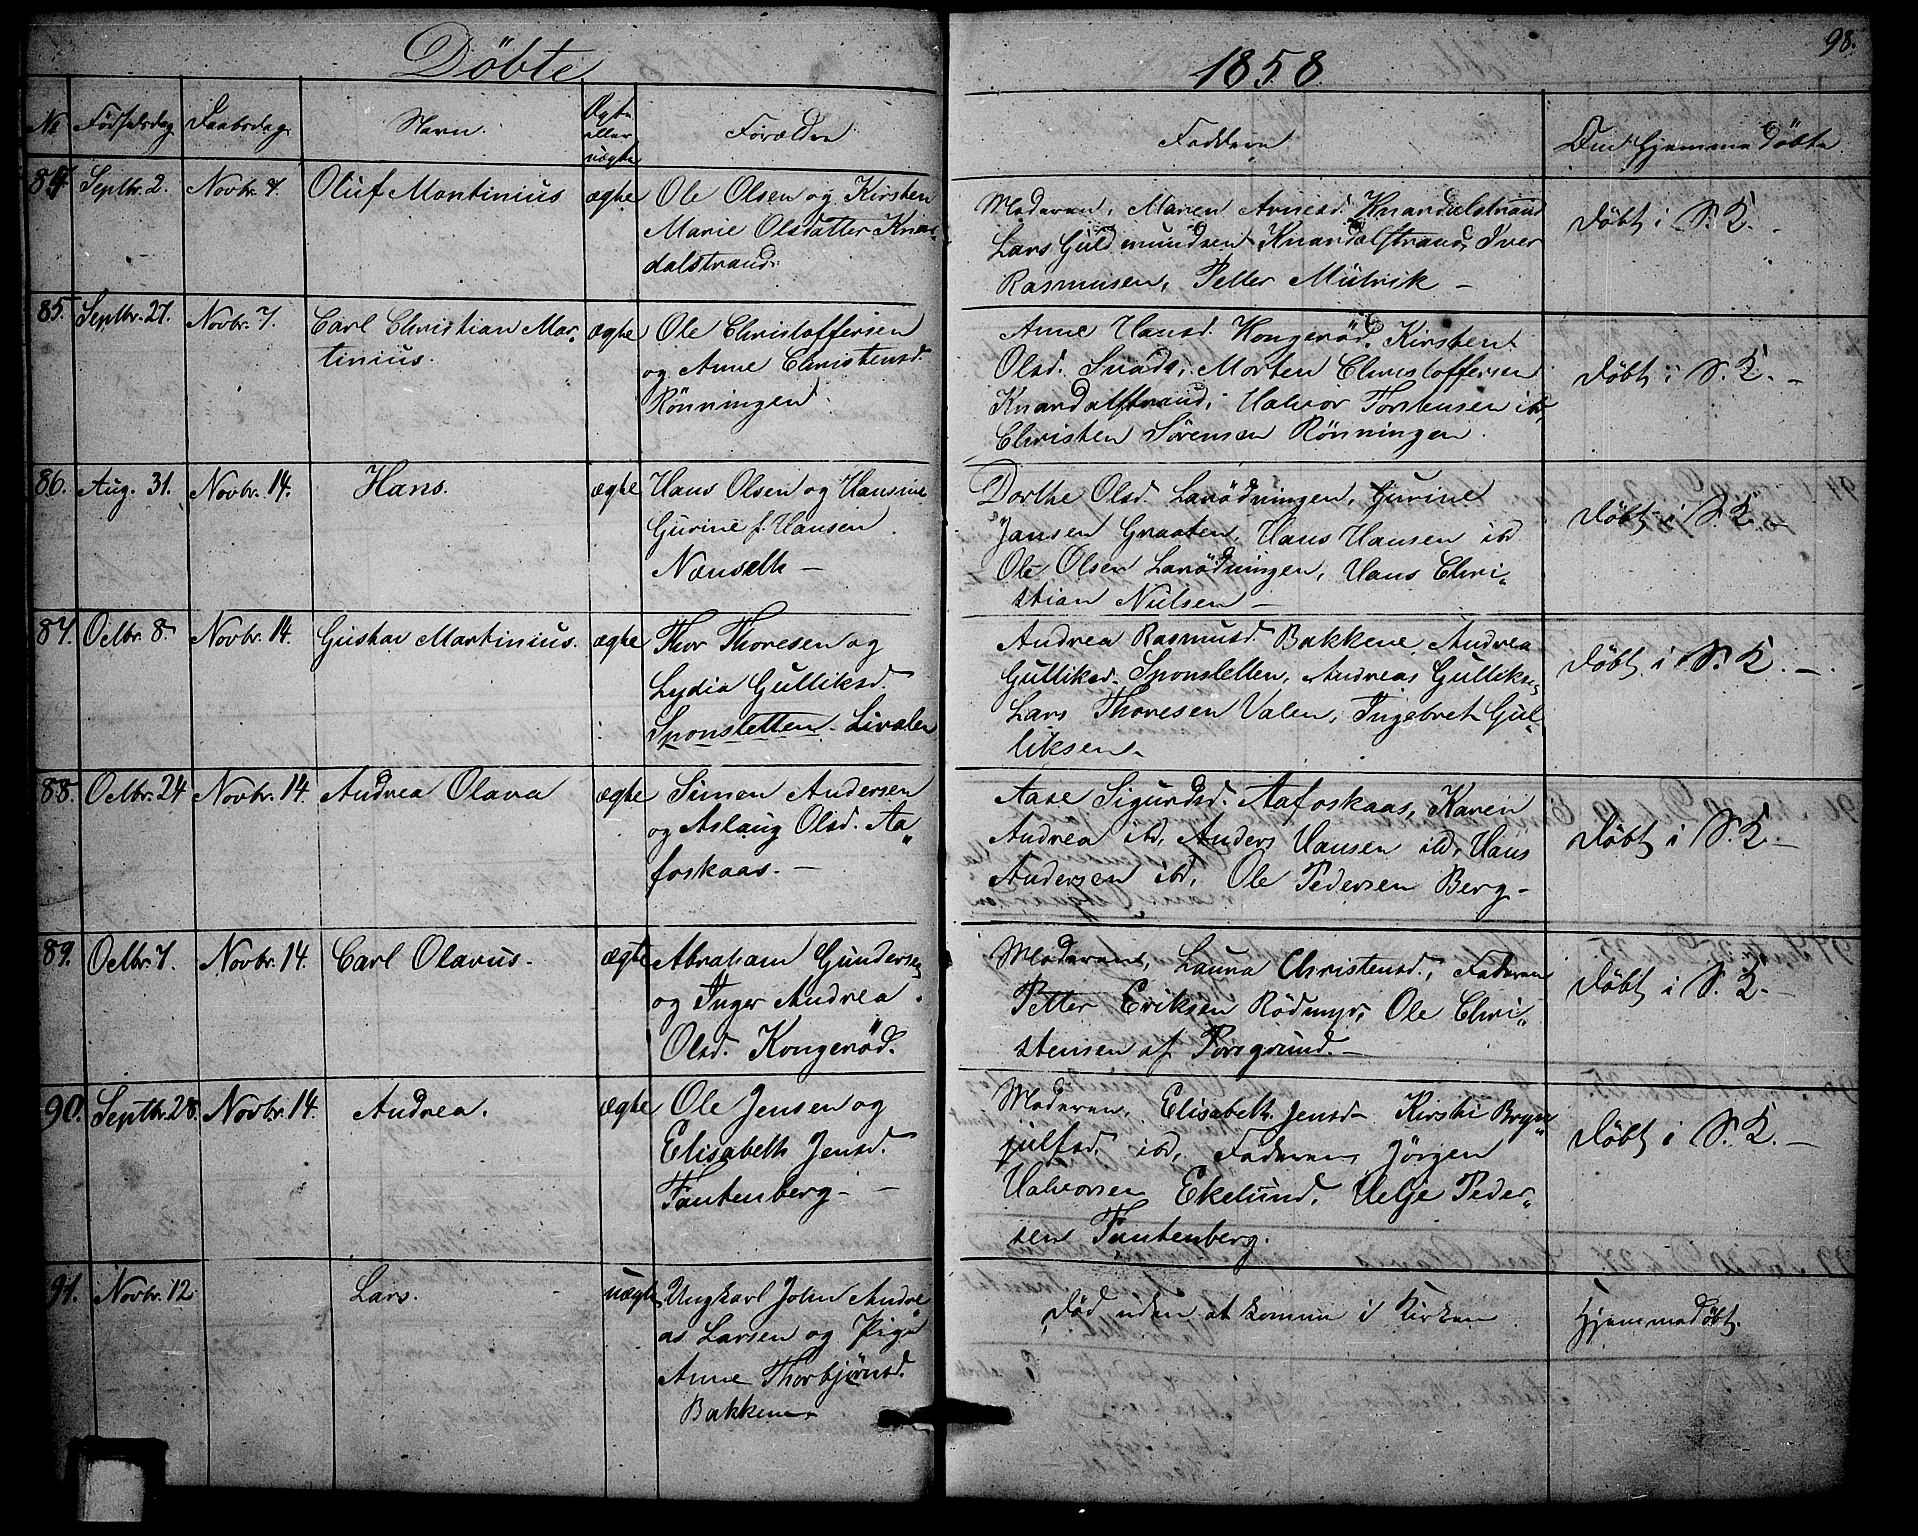 Döbte
1858
98.
No Födselsdag Daabsdag Navn. Ægte eller uægte Forældre
Faddere Om Hjemmedöbte
84. Septbr. 2. Novbr. 7. Oluf Martinius ægte Ole Olsen og Kirsten
Marie Olsdatter Knar-
dalstrand.
Moderen, Maren Arnesd. Knardalstrand
Lars Guldmundsen Knardalstrand, Iver
Rasmusen, Petter Mülvik –
Döbt i S. K. –
85. Septbr. 27. Novbr. 7. Carl Christian Mar- ægte Ole Christoffersen
tinius. og Anne Christensd.
Rönningen
Anne Hansd. Kongeröd, Kirsten
Olsd. Morten Christoffersen
Knardalstrand, Halvor Torstensen ibd,
Christen Sörensen Rönningen.
Döbt i S. K. –
86. Aug. 31. Novbr. 14. Hans. ægte Hans Olsen og Hansine
Gurine f. Hansen
Nænseth –
Dorthe Olsd. Larödningen, Gurine
Jansen Graaten, Hans Hansen ibd
Ole Olsen Larödningen, Hans Chri-
stian Nielsen –
Döbt i S. K. –
87. Octbr. 8. Novbr. 14. Gustav Martinius. ægte Thor Thoresen og
Lydia Gulliksd.
Sponsletten – Livalen
Andrea Rasmusd. Bakkene, Andrea
Gulliksd. Sponsletten, Andreas Gulliks.,
Lars Thoresen Valen, Ingebret Gul-
liksen –
Döbt i S. K. –
88. Octbr. 24 Novbr. 14. Andrea Olava ægte Simon Andersen
og Aslaug Olsd. Aa-
foskaas. –
Aase Sigurdsd. Aafoskaas, Karen
Andrea ibd, Anders Hansen ibd, Hans
Andersen ibd, Ole Pedersen Berg –
Döbt i S. K. –
89. Octbr. 7. Novbr. 14. Carl Olavus. ægte Abraham Gundersen
og Inger Andrea
Olsd. Kongeröd.
Moderen, Laura Christensd., Faderen
Petter Eriksen Rödmyr, Ole Chri-
stensen af Porsgrund. –
Döbt i S. K. –
90. Septbr. 28. Novbr. 14. Andrea. ægte Ole Jensen og
Elisabeth Jensd.
Fantenberg – –
Moderen, Elisabeth Jensd – Kirsti Bryn-
julfsd. ibd, Faderen, Jörgen
Halvorsen Ekelund, Helje Peder-
sen Fantenberg.
Döbt i S. K. –
91. Novbr. 12 Lars. uægte Ungkarl John Andre
as Larsen og Pige
Anne Thorbjörnsd.
Bakkene
Död uden at komme i Kirken.
Hjemmedöbt.